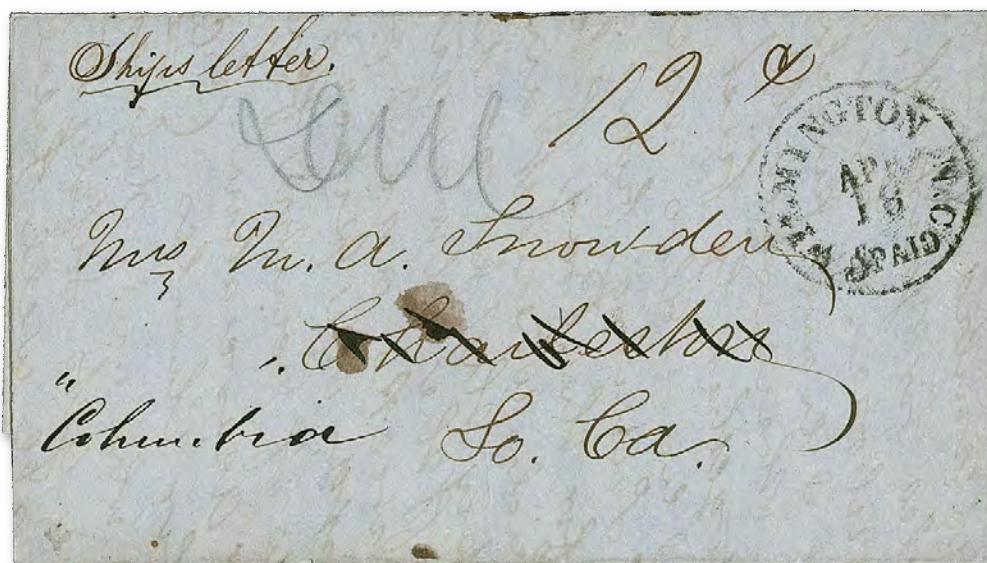 Ships letter.
12 ¢
WILMINGTON N.C.
APR
16
PAID
Mrs M. A. Snowden
Charleston
Columbia So. Ca.